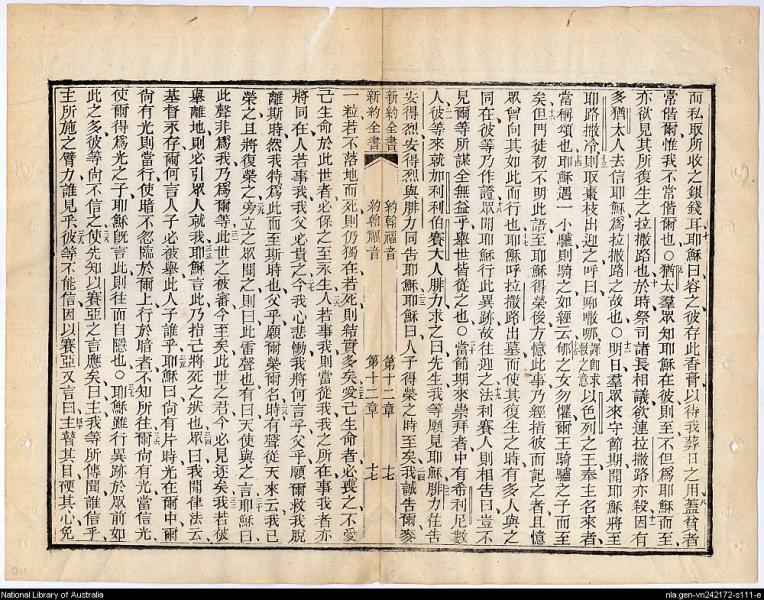 而私取所收之銀錢耳耶穌曰容之彼存此香膏以待我葬日之用蓋貧者
常偕爾惟我不常偕爾也○猶太羣眾知耶穌在彼則至不但爲耶穌而至
亦欲見其所復生之拉撒路也於時祭司諸長相議欲連拉撒路亦殺因有
多猶太人去信耶穌爲拉撒路之故也○明日羣眾來守節期聞耶穌將至
耶路撒冷則取棗枝出迎之呼曰㖿囌哪譯卽求救之意以色列之王奉主名來者
當稱頌也耶穌遇一小驢則騎之如經云郇之女勿懼爾王騎驢之子而至
矣但門徒初不明此語至耶穌得榮後方憶此事乃經指彼而記之者且憶
眾曾向其如此而行也耶穌呼拉撒路出墓而使其復生之時有多人與之
同在彼等乃作證眾聞耶穌行此異跡故往迎之法利賽人則相告曰豈不
見爾等所謀全無益乎舉世皆從之也○當節期來崇拜者中有希利尼數
人彼等來就加利利伯賽大人腓力求之曰先生我等願見耶穌腓力往告
安得烈安得烈與腓力同告耶穌耶穌曰人子得榮之時至矣我誠告爾麥
新約全書 約翰福音 第十二章 十七
新約全書 約翰福音 第十二章 十七
一粒若不落地而死則仍獨在若死則結實多矣愛己生命者必喪之不愛
己生命於此世者必保之至永生人若事我則當從我我之所在事我者亦
將同在人若事我我父必貴之今我心悲慟我將何言乎父乎願爾救我脫
離斯時然我特爲此而至斯時也父乎願爾榮爾名時有聲從天來云我已
榮之且將復榮之旁立之眾聞之則曰此雷聲也有曰天使與之言耶穌曰
此聲非爲我乃爲爾等此世之被審今至矣此世之君今必見逐矣我若被
舉離地則必引眾人就我耶穌言此乃指己將死之狀也眾曰我聞律法云
基督永存爾何言人子必被舉此人子誰乎耶穌曰尙有片時光在爾中爾
尙有光則當行使暗不忽臨於爾上行於暗者不知所往爾尙有光當信光
使爾得爲光之子耶穌旣言此則往而自隱也○耶穌雖行異跡於眾前如
此之多彼等尙不信之使先知以賽亞之言應矣曰主我等所傳聞誰信乎
主所施之臂力誰見乎彼等不能信因以賽亞又言曰主瞽其目硬其心免
National Library of Australia
nla.gen-vn242172-s111-e